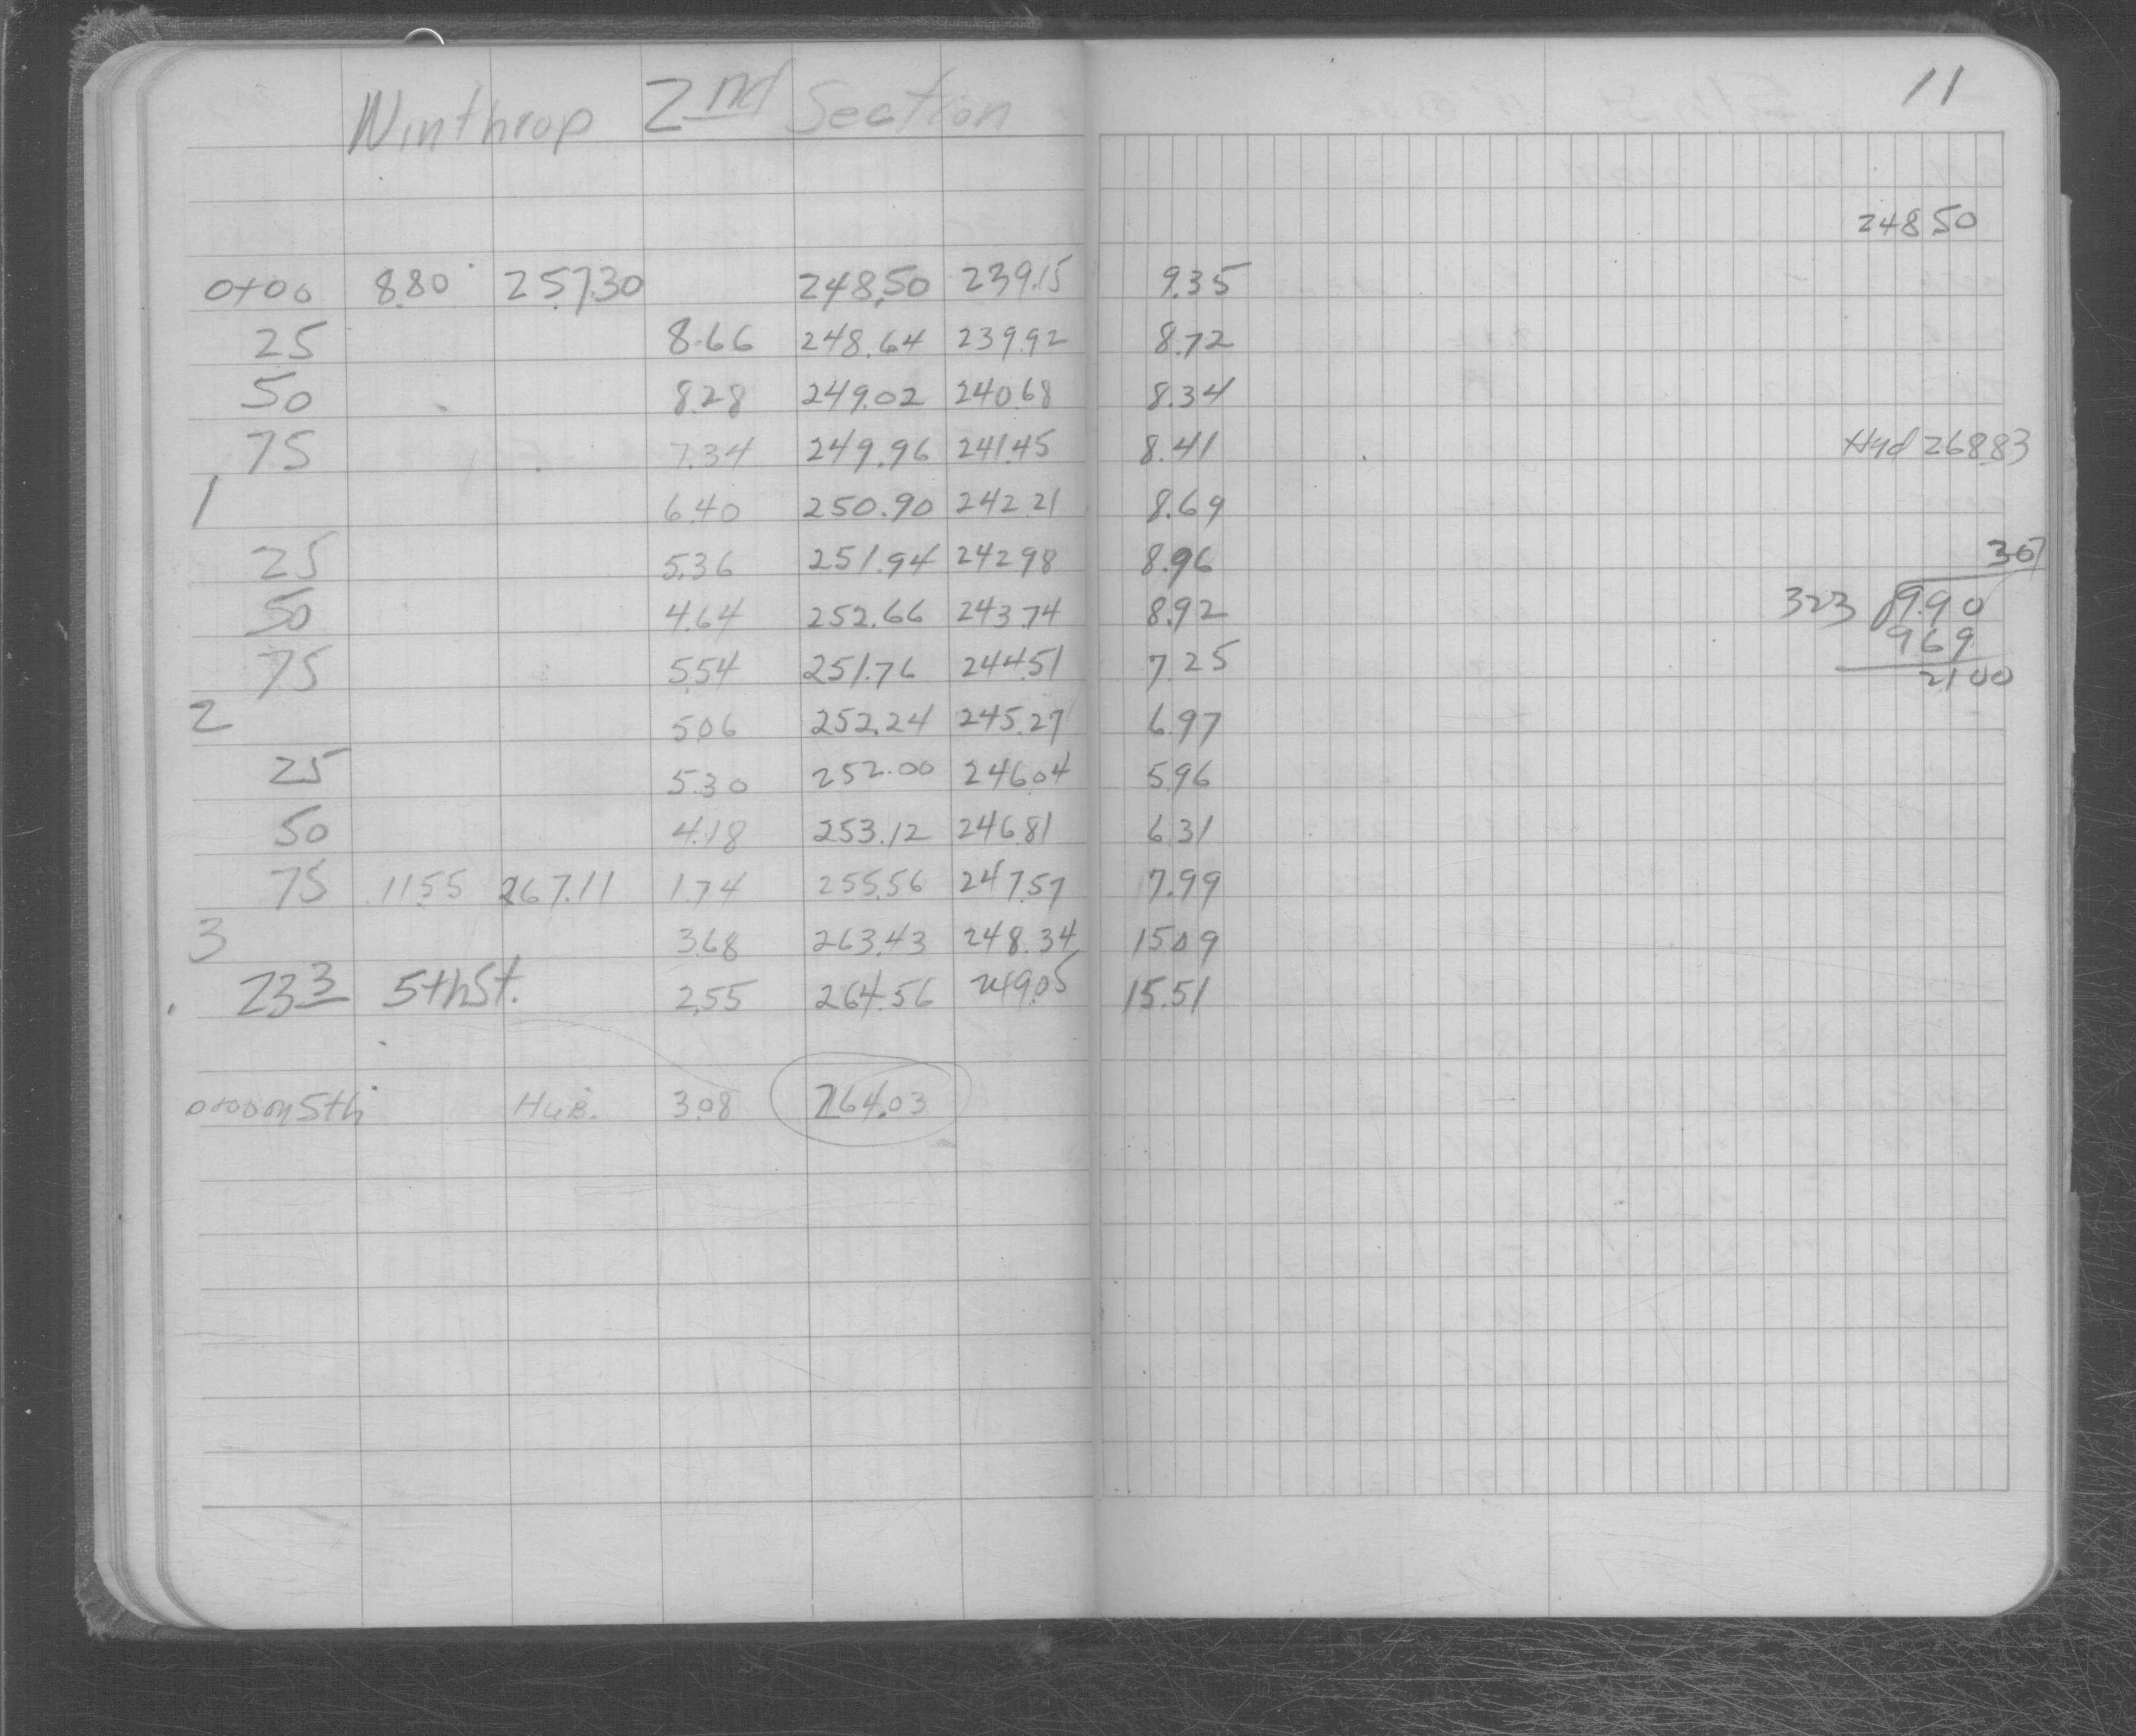 Winthrop 2nd Section
11
248.50
0+00 8.80 257.30 248.50 239.15 9.35
25 8.66 248.64 239.92 8.72
50 8.28 249.02 240.68 8.34
75 7.34 249.96 241.45 8.41
Hyd 268.83
1 6.40 250.90 242.21 8.69
25 5.36 251.94 242.98 8.96
307
50 4.64 252.66 243.74 8.92
323 9.90
969
75 5.54 251.76 244.51 7.25
2100
2 5.06 252.24 245.27 6.97
25 5.30 252.00 246.04 5.96
50 4.18 253.12 246.81 6.31
75 11.55 267.11 1.74 255.56 247.57 7.99
3 3.68 263.43 248.34 15.09
23 3 5th St. 2.55 264.56 249.05 15.51
0+00 on 5th Hub. 3.08 264.03